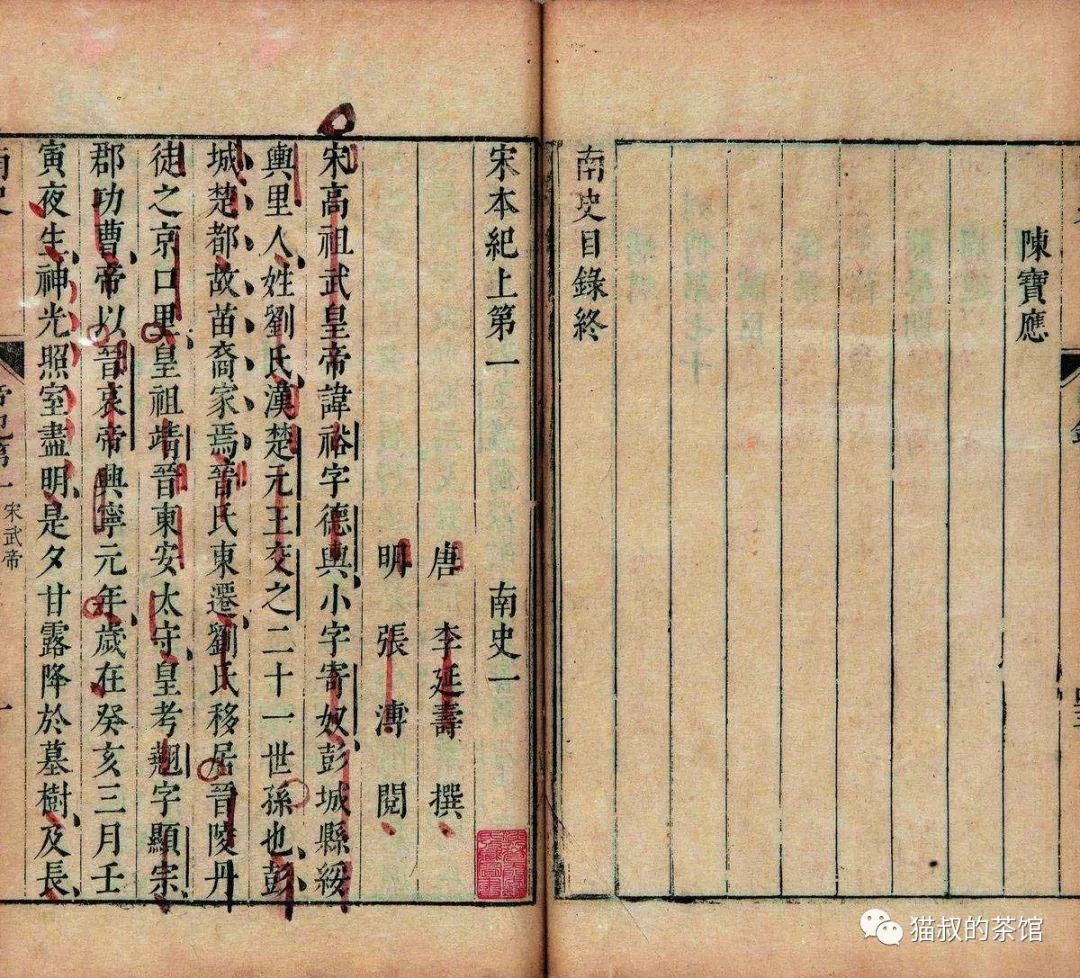 陳寶應
南史目錄終
宋本紀上第一 南史一
唐 李延壽 撰
明 張溥 閱
宋高祖武皇帝諱裕字德輿小字寄奴彭城縣綏
輿里人姓劉氏漢楚元王交之二十一世孫也彭
城楚都故苗裔家焉晉氏東遷劉氏移居晉陵丹
徒之京口里皇祖靖晉東安太守皇考翹字顯宗
郡功曹帝以晉哀帝興寧元年歲在癸亥三月壬
寅夜生神光照室盡明是夕甘露降於墓樹及長
南史
帝紀第一
宋武帝
猫叔的茶馆